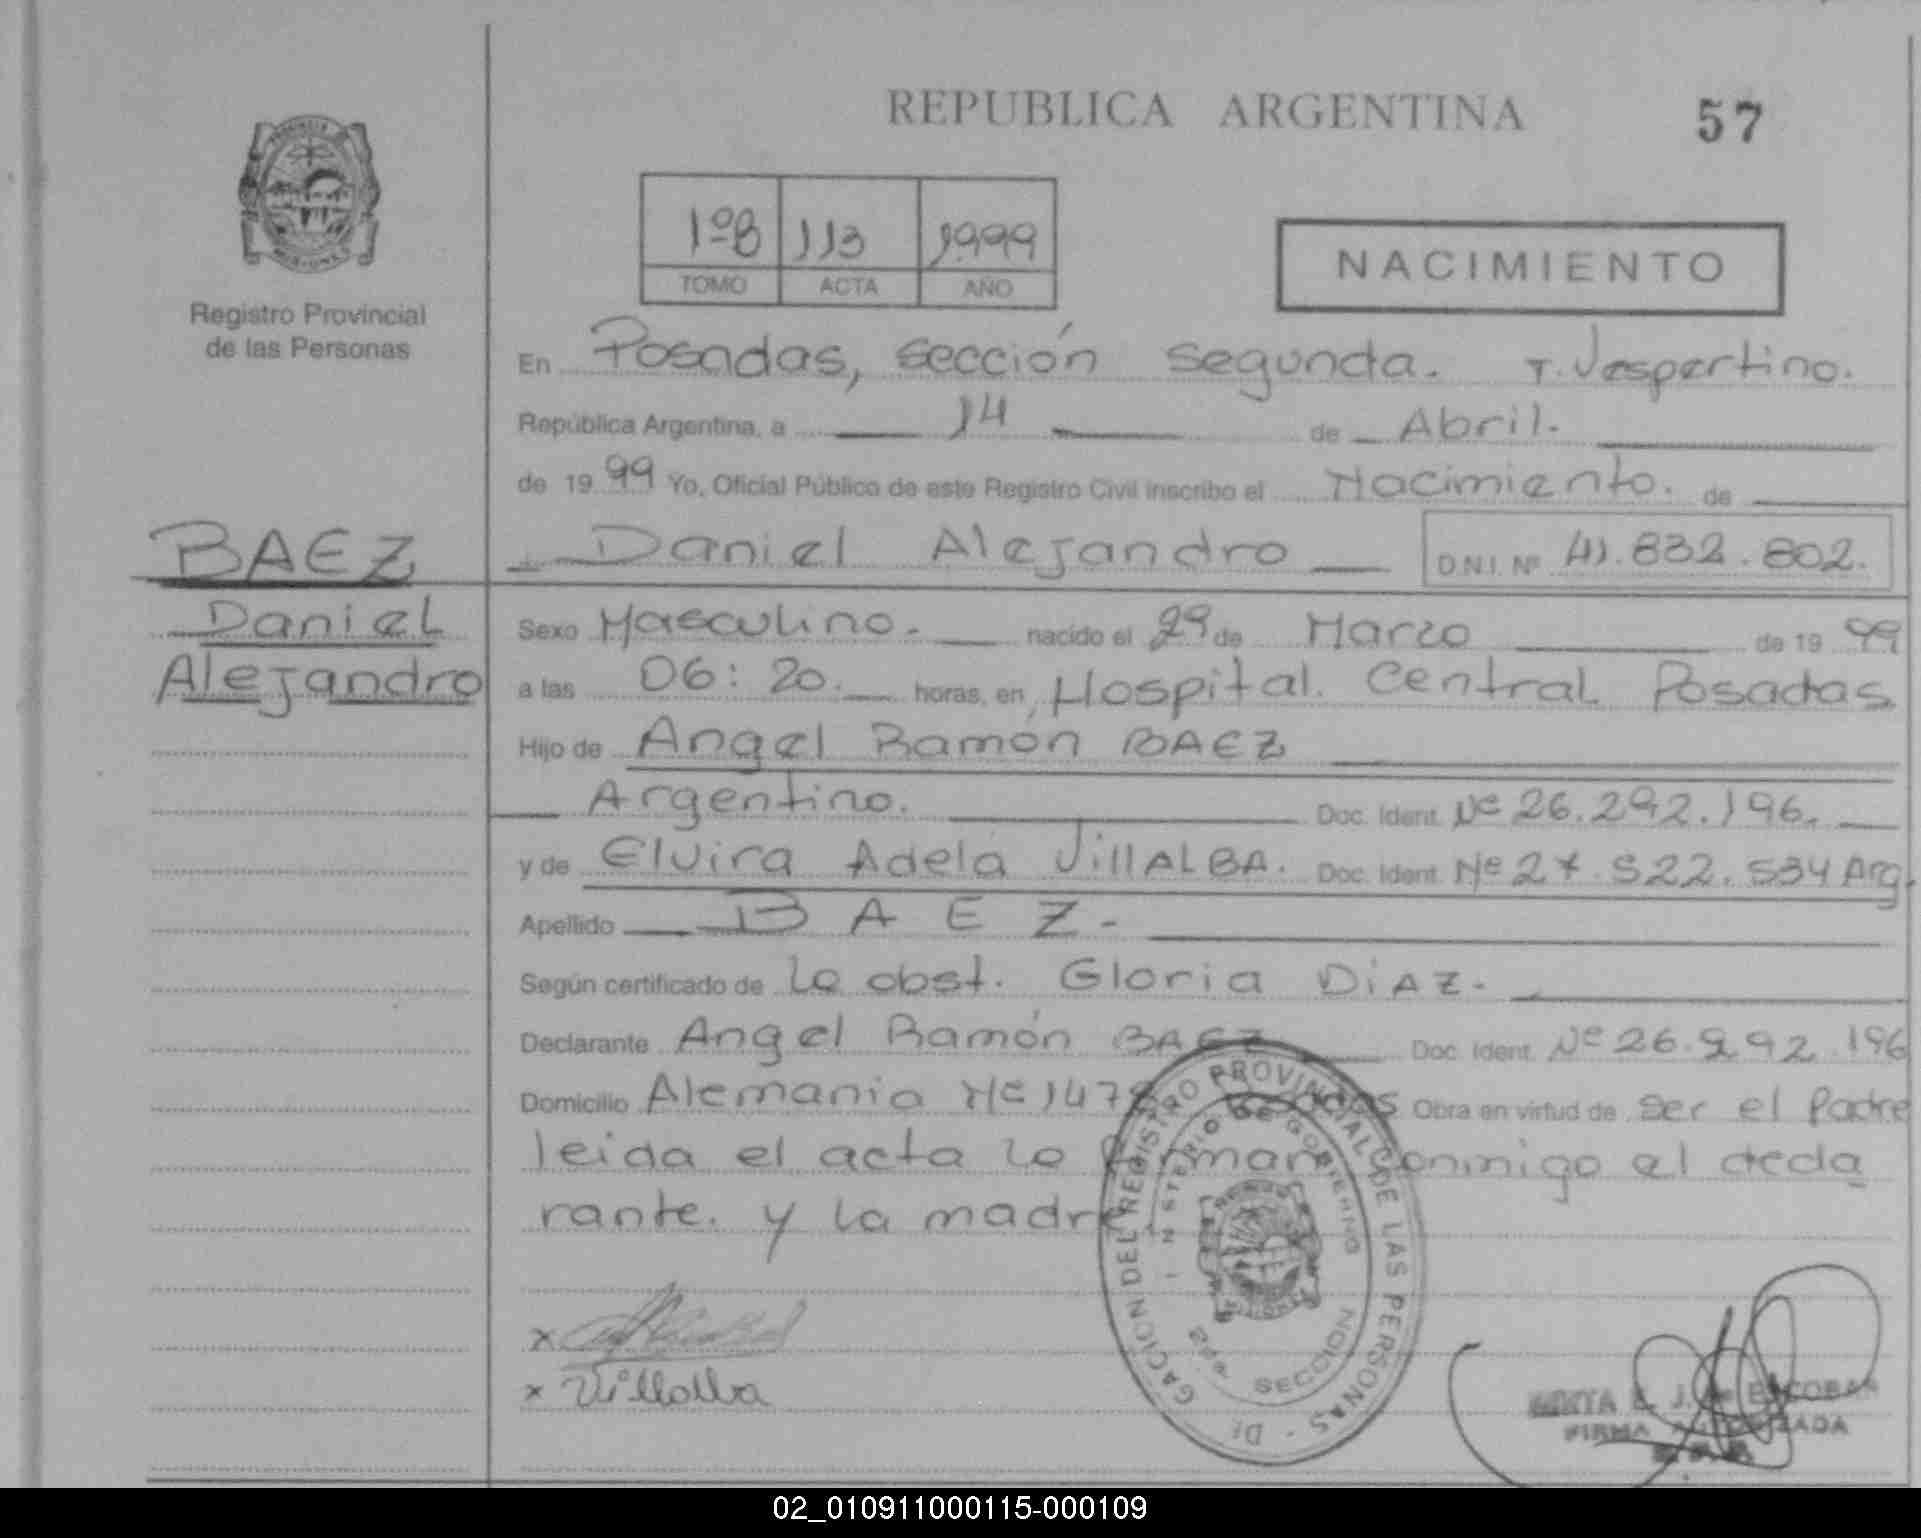 REPUBLICA ARGENTINA
57
PROVINCIA
MISIONES
Registro Provincial
de las Personas
1º B 113 1999
TOMO ACTA AÑO
NACIMIENTO
En Posadas, sección segunda. T. Vespertino.
República Argentina, a 14 de Abril.
de 19 99 Yo, Oficial Público de este Registro Civil inscribo el Nacimiento. de
BAEZ
Daniel
Alejandro
Daniel Alejandro D.N.I. Nº 41.832.802.
Sexo Masculino. nacido el 29 de Marzo de 19 99
a las 06:20. horas, en Hospital Central Posadas
Hijo de Angel Ramón BAEZ
Argentino. Doc. Ident. Nº 26.292.196.
y de Elvira Adela VillALBA. Doc. Ident. Nº 27.522.534 Arg.
Apellido BAEZ.-
Según certificado de La obst. Gloria DiAZ.
Declarante Angel Ramón BAEZ Doc. Ident. Nº 26.292.196
Domicilio Alemania Nº 1478 Posadas Obra en virtud de ser el Padre
leida el acta la firman conmigo el decla
rante. y la madre.
x
x Villalba
DELEGACION DEL REGISTRO PROVINCIAL DE LAS PERSONAS
MINISTERIO DE GOBIERNO
2da SECCION
ESCOBAR
FIRMA AUTORIZADA
02_010911000115-000109